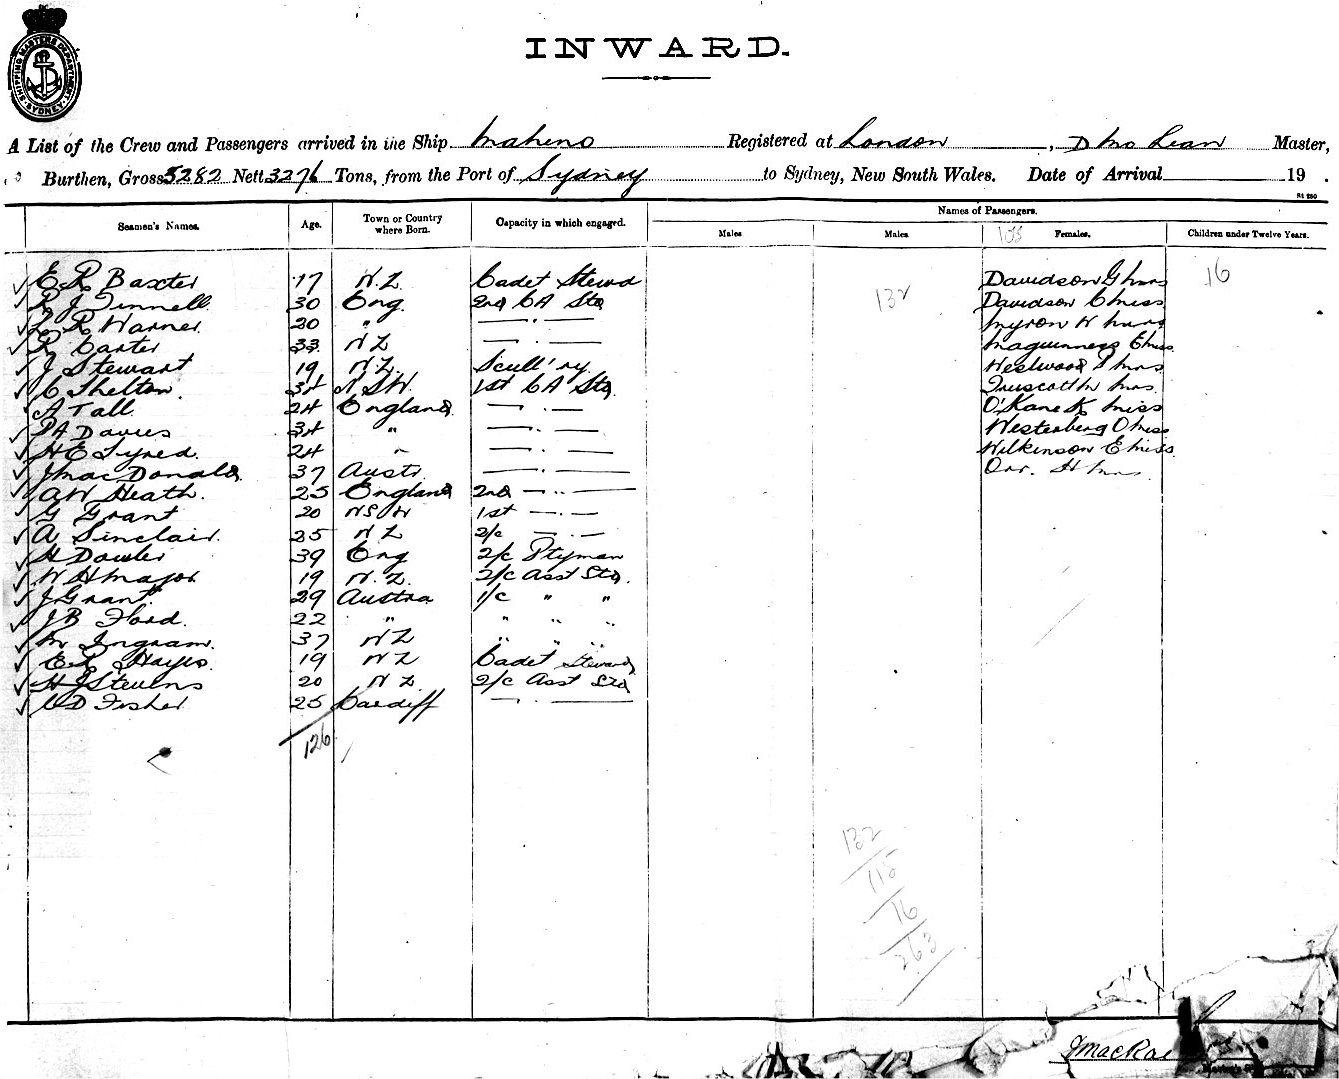 SHIPPING MASTERS DEPARTMENT SYDNEY
INWARD.
A List of the Crew and Passengers arrived in the Ship Maheno Registered at London, D McLean Master,
Burthen, Gross 5282 Nett 3276 Tons, from the Port of Sydney to Sydney, New South Wales. Date of Arrival 19 .
Seamen's Names. Age. Town or Country where Born. Capacity in which engaged. Names of Passengers.
Males Males. 108 Females. Children under Twelve Years.
E R Baxter 17 N.Z. Cadet Stewd Davidson G Mrs 16
R J Tinnell 30 Eng 2nd CA Std 132 Davidson C Miss
L R Warner 20 " — " — Myron W Mrs
R Carter 33 N Z — . — Maguinness E Miss
J Stewart 19 N.Z. Scull'ry Westwood Mrs
C Shelton 34 N S W. 1st CA Std Truscott M Mrs
A Tall 24 England — . — O'Kane K Miss
P A Davies 34 " — . — Westerberg O Miss
H E Tyred 24 " — . — Wilkinson E Miss
J MacDonald 37 Austr — . — Orr. H Mrs
A W Heath. 25 England 2nd — . —
G Grant 20 N S W 1st — . —
A Sinclair. 25 N Z 2/c — . —
H Dowler 39 Eng 2/c Ptyman
W H Major 19 N.Z. 2/c Asst Std.
J Grant. 29 Austra 1/c " "
J B Ford. 22 " " " "
M Ingram. 37 N Z " " "
E R Hayes. 19 N Z Cadet Steward
H J Stevens 20 N Z 2/c Asst Std
C D Fisher 25 Cardiff — . —
126
132
115
16
263
J MacRae